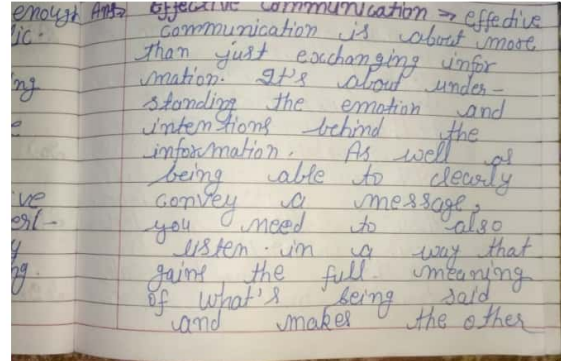 enough Ans Effective communication => effective
lic. communication is about more
than just exchanging infor
ing mation. It's about under-
standing the emotion and
intentions behind the
information. As well as
being able to clearly
ve convey a message,
erl- you need to also
y listen in a way that
ng. gains the full meaning
of what's being said
and makes the other